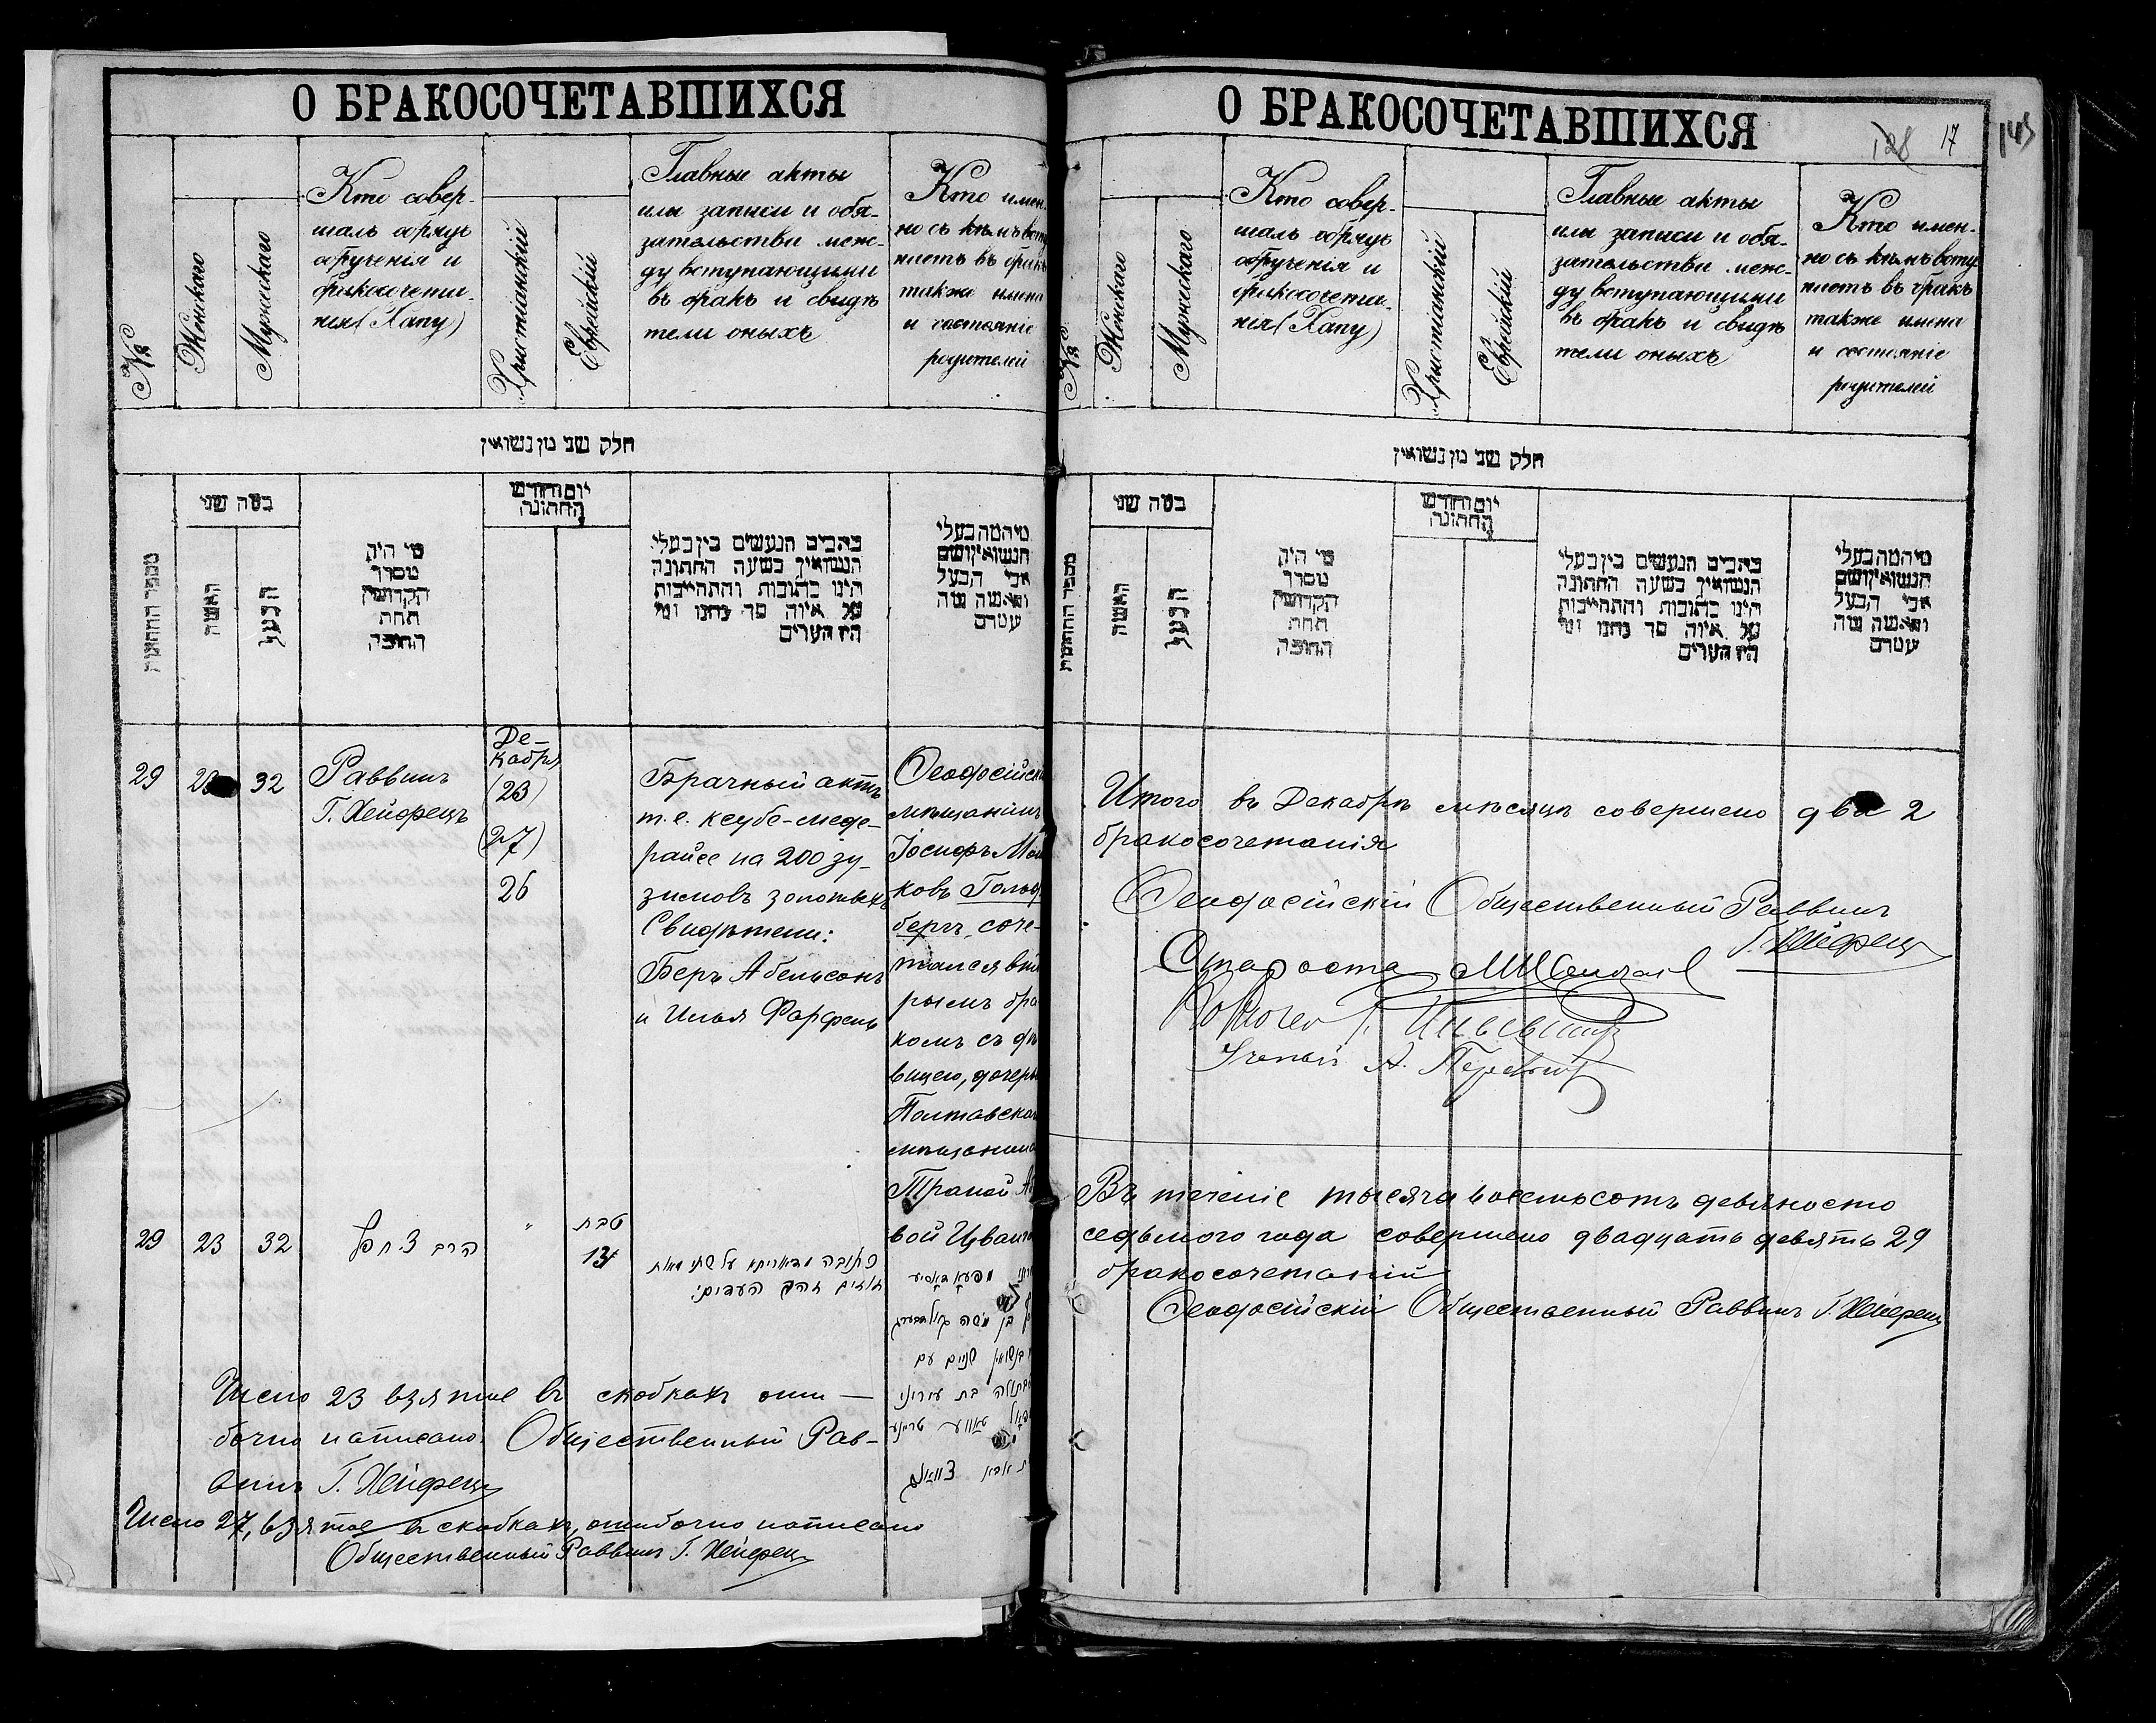 О БРАКОСОЧЕТАВШИХСЯ
№
Женскаго
Мужескаго
Кто совер-
шалъ обрядъ
обрученія и
бракосочета-
нія (Хапу)
Христіанскій
Еврейскій
Главные акты
или записи и обя-
зательства меж-
ду вступающими
въ бракъ и свидѣ
тели оныхъ
Кто имен-
но съ кѣмъ всту
паетъ въ бракъ
также имена
и состояніе
родителей
חלק שני מן נשואין
מספר החתונות
כמה שני
האשה
הבעל
מי היה
מסדר
הקדושין
תחת
החופה
יום וחודש
החתונה
כתבים הנעשים בין בעלי
הנשואין בשעה החתונה
היינו כתובות והתחייבות
על איזה סך נתנו ומי
היו העדים
מי המה בעלי
הנשואין ושם
אבי הבעל
והאשה מה
עמדם
29
23
32
Раввинъ
Г. Хейфецъ
Де-
кабря
(23)
(27)
26
Брачный актъ
т. е. ксубе-меде-
райсе на 200 зу-
зимовъ золотыхъ
Свидѣтели:
Беръ Абельсонъ
и Илья Фарфель
Ѳеодосійскі
мѣщанинъ
Іосифъ Мош
ковъ Гольд
бергъ, соче-
тался вто
рымъ бра
комъ съ дѣ
вицею, дочерью
Полтавскаго
мѣщанина
вой Цванг
29
23
32
הרב צ. חפץ
"
טבת
13
כתובה מדאוריתא על שתי מאות
זוזים זהב העדים:
בן משה גולדבערג
בנשואין שניים עם
בתולה בת עירוני
Число 23 взятое въ скобкахъ оши-
бочно написано. Общественный Рав-
винъ Г. Хейфецъ
Число 27, взятое въ скобкахъ, ошибочно написано
Общественный Раввинъ Г. Хейфецъ
О БРАКОСОЧЕТАВШИХСЯ
128 17
145
№
Женскаго
Мужескаго
Кто совер-
шалъ обрядъ
обрученія и
бракосочета-
нія (Хапу)
Христіанскій
Еврейскій
Главные акты
или записи и обя-
зательства меж-
ду вступающими
въ бракъ и свидѣ
тели оныхъ
Кто имен-
но съ кѣмъ всту
паетъ въ бракъ
также имена
и состояніе
родителей
חלק שני מן נשואין
מספר החתונות
כמה שני
האשה
הבעל
מי היה
מסדר
הקדושין
תחת
החופה
יום וחודש
החתונה
כתבים הנעשים בין בעלי
הנשואין בשעה החתונה
היינו כתובות והתחייבות
על איזה סך נתנו ומי
היו העדים
מי המה בעלי
הנשואין ושם
אבי הבעל
והאשה מה
עמדם
Итого въ Декабрѣ мѣсяцѣ совершено два 2
бракосочетанія
Ѳеодосійскій Общественный Раввинъ
Г. Хейфецъ
Староста
Ученый А.
Въ теченіе тысяча восемьсотъ девяносто
седьмого года совершено двадцать девять 29
бракосочетаній
Ѳеодосійскій Общественный Раввинъ Г. Хейфецъ